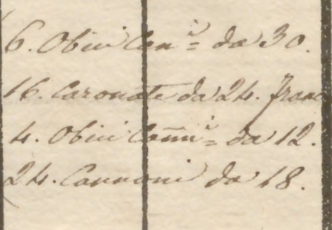 6. Obici Con.i = da 30.
16. Caronate da 24. franc
4. Obici Com̃.i = da 12.
24. Cannoni da 18.